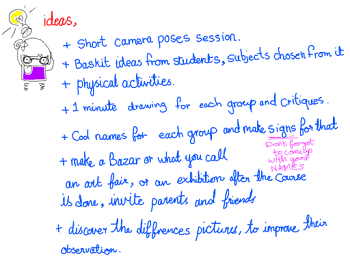 ideas,
+ Short camera poses session.
+ Baskit ideas from students, subjects chosen from it
+ physical activities.
+ 1 minute drawing for each group and Critiques.
+ Cool names for each group and make signs for that
Don't forget
to come up
with good
NAMES
+ make a Bazar or what you call
an art fair, or an exhibition after the Course
is done, invite parents and friends
+ discover the diffrences pictures, to improve their
observation.